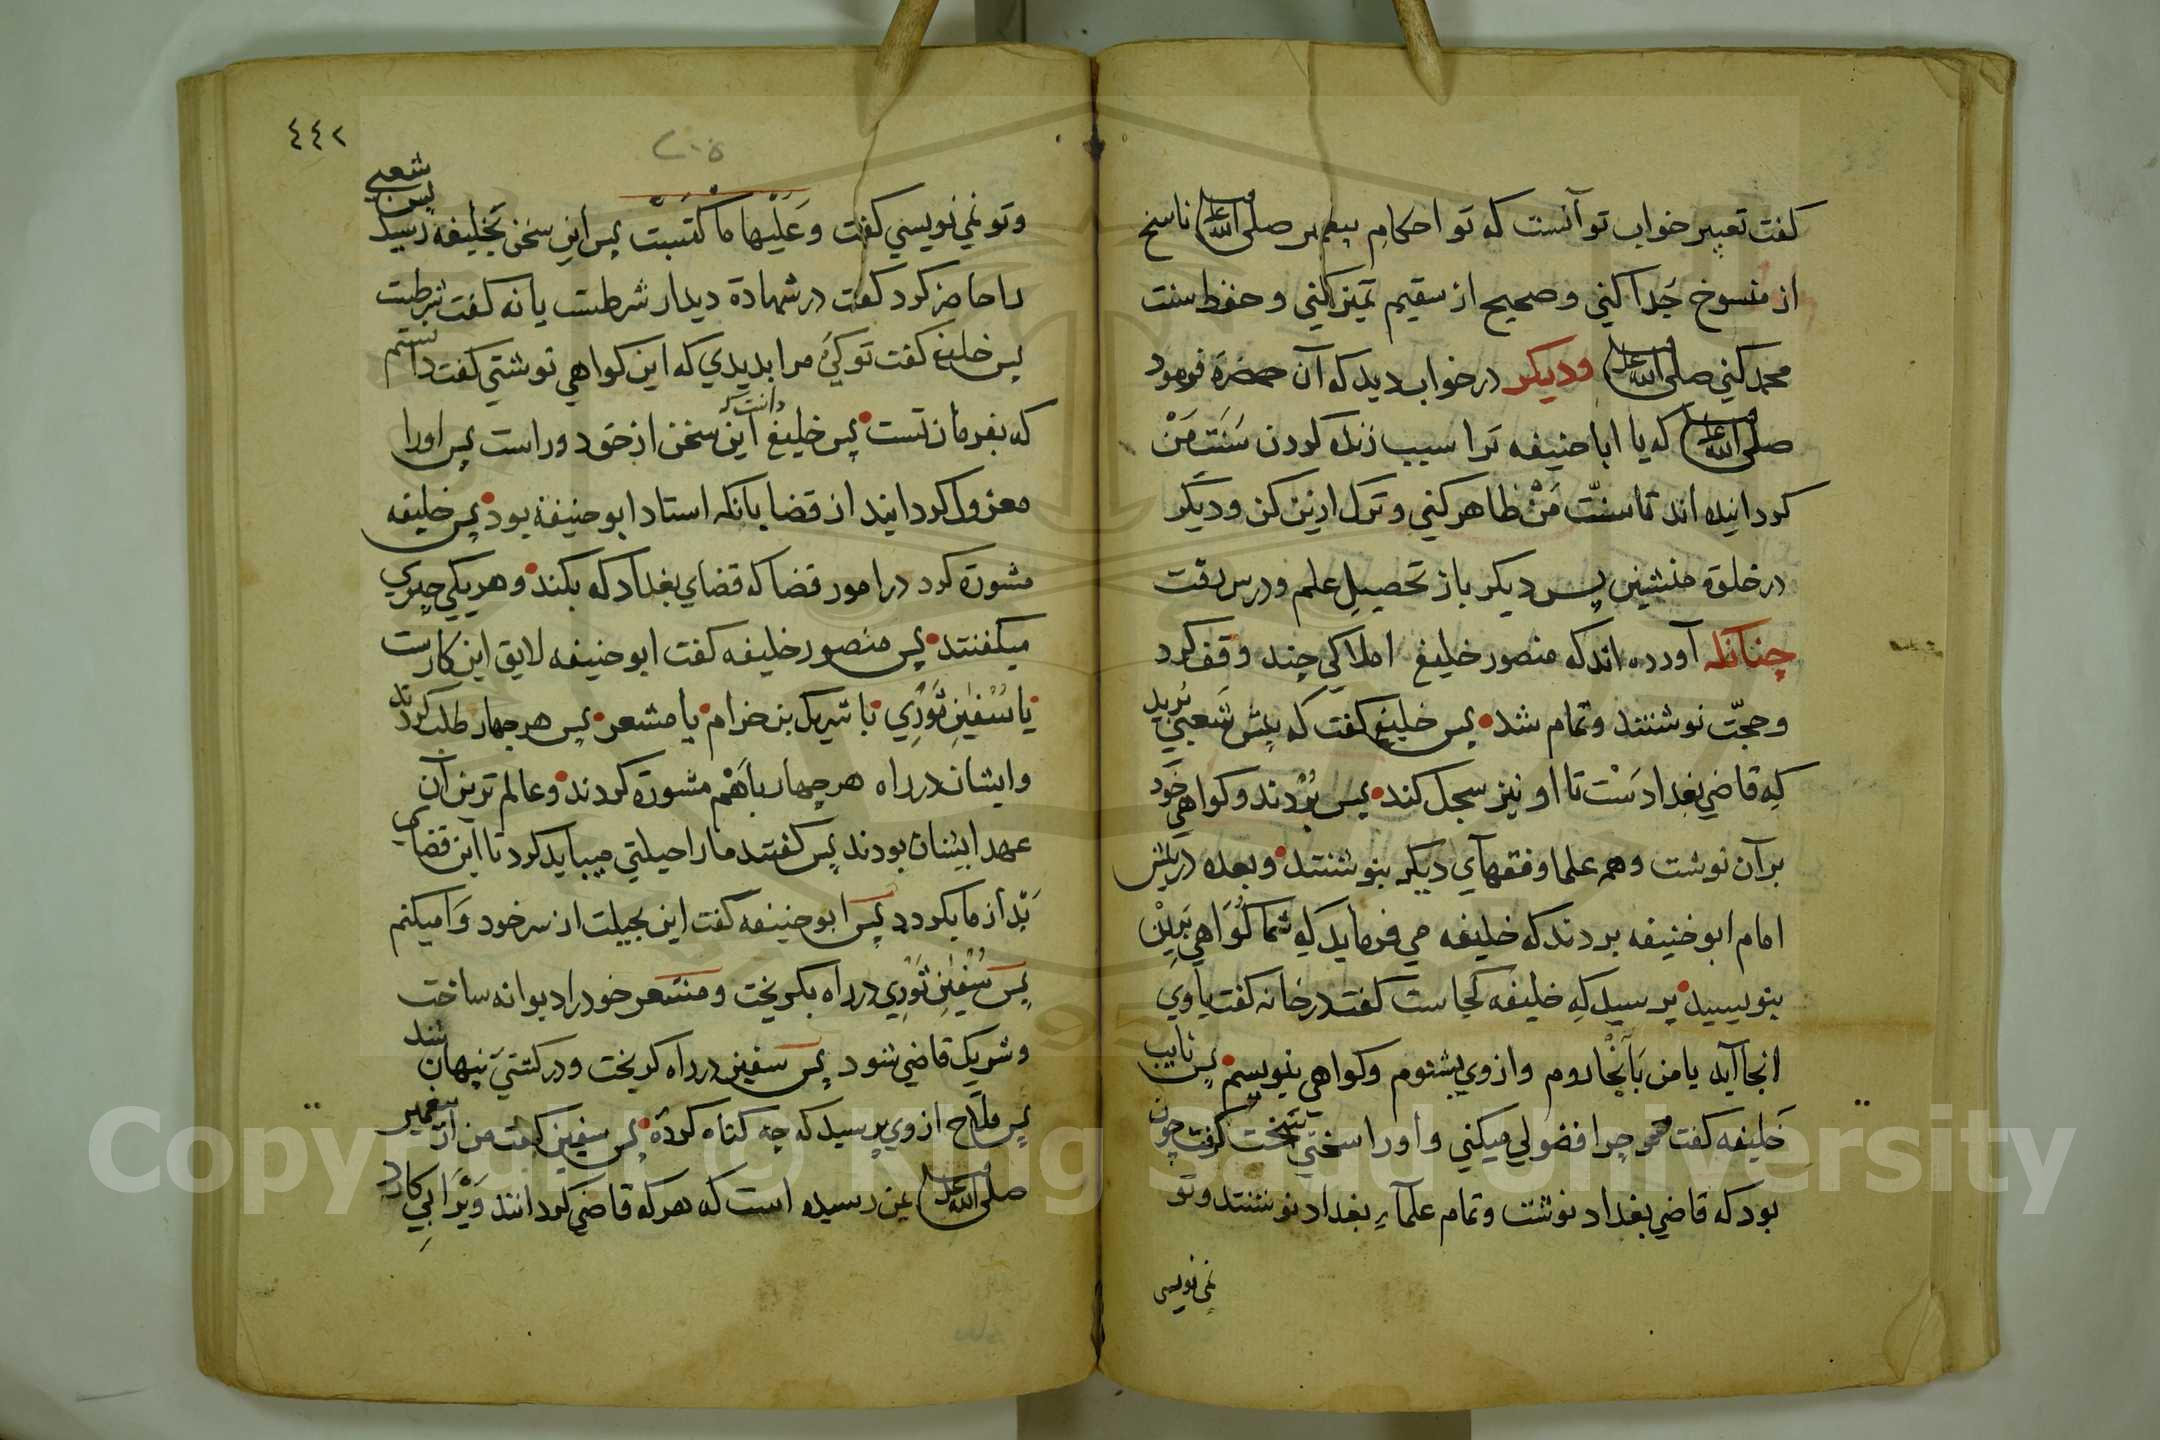 كفت تعبير خواب تو آنست كه تو احكام پيغمبر صلى الله عليه ناسخ
از منسوخ جدا كني و صحيح از سقيم تميز كني و حفظ سنت
محمد كني صلى الله عليه وديكر در خواب ديد كه آن حضرة فرمود
صلى الله عليه كه يا ابا حنيفه ترا سبب زنده كردن سنت من
كردانيده اند تا سنت من ظاهر كني و ترك اين كن و ديكر
در خلوة منشين پس ديكر باز تحصيل علم و درس رفت
چنانكه آورده اند كه منصور خليفه املاكي چند وقف كرد
و حجت نوشتند و تمام شد پس خليفه كفت كه پيش شعبي بريد
كه قاضي بغدادست تا او نيز سجل كند پس بردند و كواهي خود
بر آن نوشت و همه علما و فقهاي ديكر بنوشتند و بعده در پيش
امام ابو حنيفه بردند كه خليفه مي فرمايد كه شما كواهي برين
بنويسيد پرسيد كه خليفه كجاست كفت در خانه كفت يا وي
انجا آيد يا من بآنجا روم و از وي بشنوم و كواهي بنويسم پس نايب
خليفه كفت چرا فضولي ميكني و اورا سختي سخت كفت چون
بود كه قاضي بغداد نوشت و تمام علماء بغداد نوشتند و تو
نمي نويسي
٤٤٢
٢٠٥
و تو نمي نويسي كفت و عليها ما اكتسبت پس اين سخن بخليفه رسيد پس شعبي
را حاضر كرد كفت در شهادة ديدار شرطست يا نه كفت شرطست
پس خليفه كفت تو كي مرا بديدي كه اين كواهي نوشتي كفت دانستم
كه بفرمان تست پس خليفه دانست كه اين سخن از حق دوراست پس اورا
معزول كردانيد از قضا بانكه استاد ابو حنيفة بود پس خليفه
مشورة كرد در امور قضا كه قضاي بغداد كه بكند و هر يكي چيزي
ميكفتند پس منصور خليفه كفت ابو حنيفه لايق اين كارست
يا سفين ثوري يا شريك بن خزام يا مشعر پس هر چهار طلب كردند
و ايشان در راه هر چهار باهم مشورة كردند و عالم ترين آن
عهد ايشان بودند پس كفتند مارا حيلتي ميبايد كرد تا اين قضاي
بد از ما بكردد پس ابو حنيفه كفت اين بحيلت از سر خود وا ميكنم
پس سفين ثوري در راه بكريخت و مشعر خودرا ديوانه ساخت
و شريك قاضي شود پس سفين در راه كريخت و در كشتي پنهان شد
پس ملاح از وي پرسيد كه چه كناه كرده پس سفين كفت من از پيغمبر
صلى الله عليه من رسيده است كه هر كه قاضي كردانند ويرا بي كارد